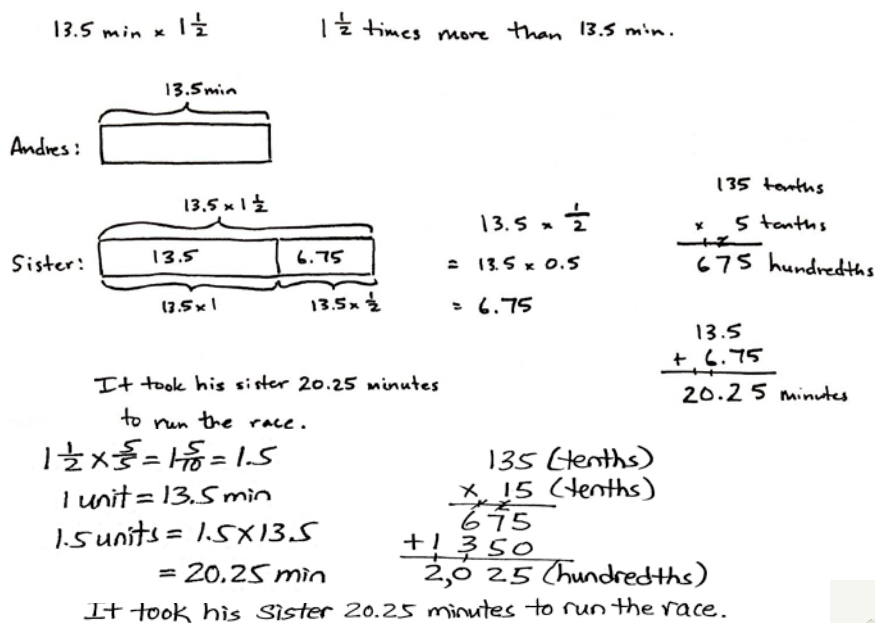 13.5 min × 1 1/2    1 1/2 times more than 13.5 min.
13.5 min
Andres:
13.5 × 1 1/2
Sister: 13.5 6.75
13.5 × 1    13.5 × 1/2
13.5 × 1/2
= 13.5 × 0.5
= 6.75
135 tenths
× 5 tenths
675 hundredths
13.5
+ 6.75
20.25 minutes
It took his sister 20.25 minutes
to run the race.
1 1/2 × 5/5 = 1 5/10 = 1.5
1 unit = 13.5 min
1.5 units = 1.5 × 13.5
= 20.25 min
135 (tenths)
× 15 (tenths)
675
+1 350
2,025 (hundredths)
It took his sister 20.25 minutes to run the race.